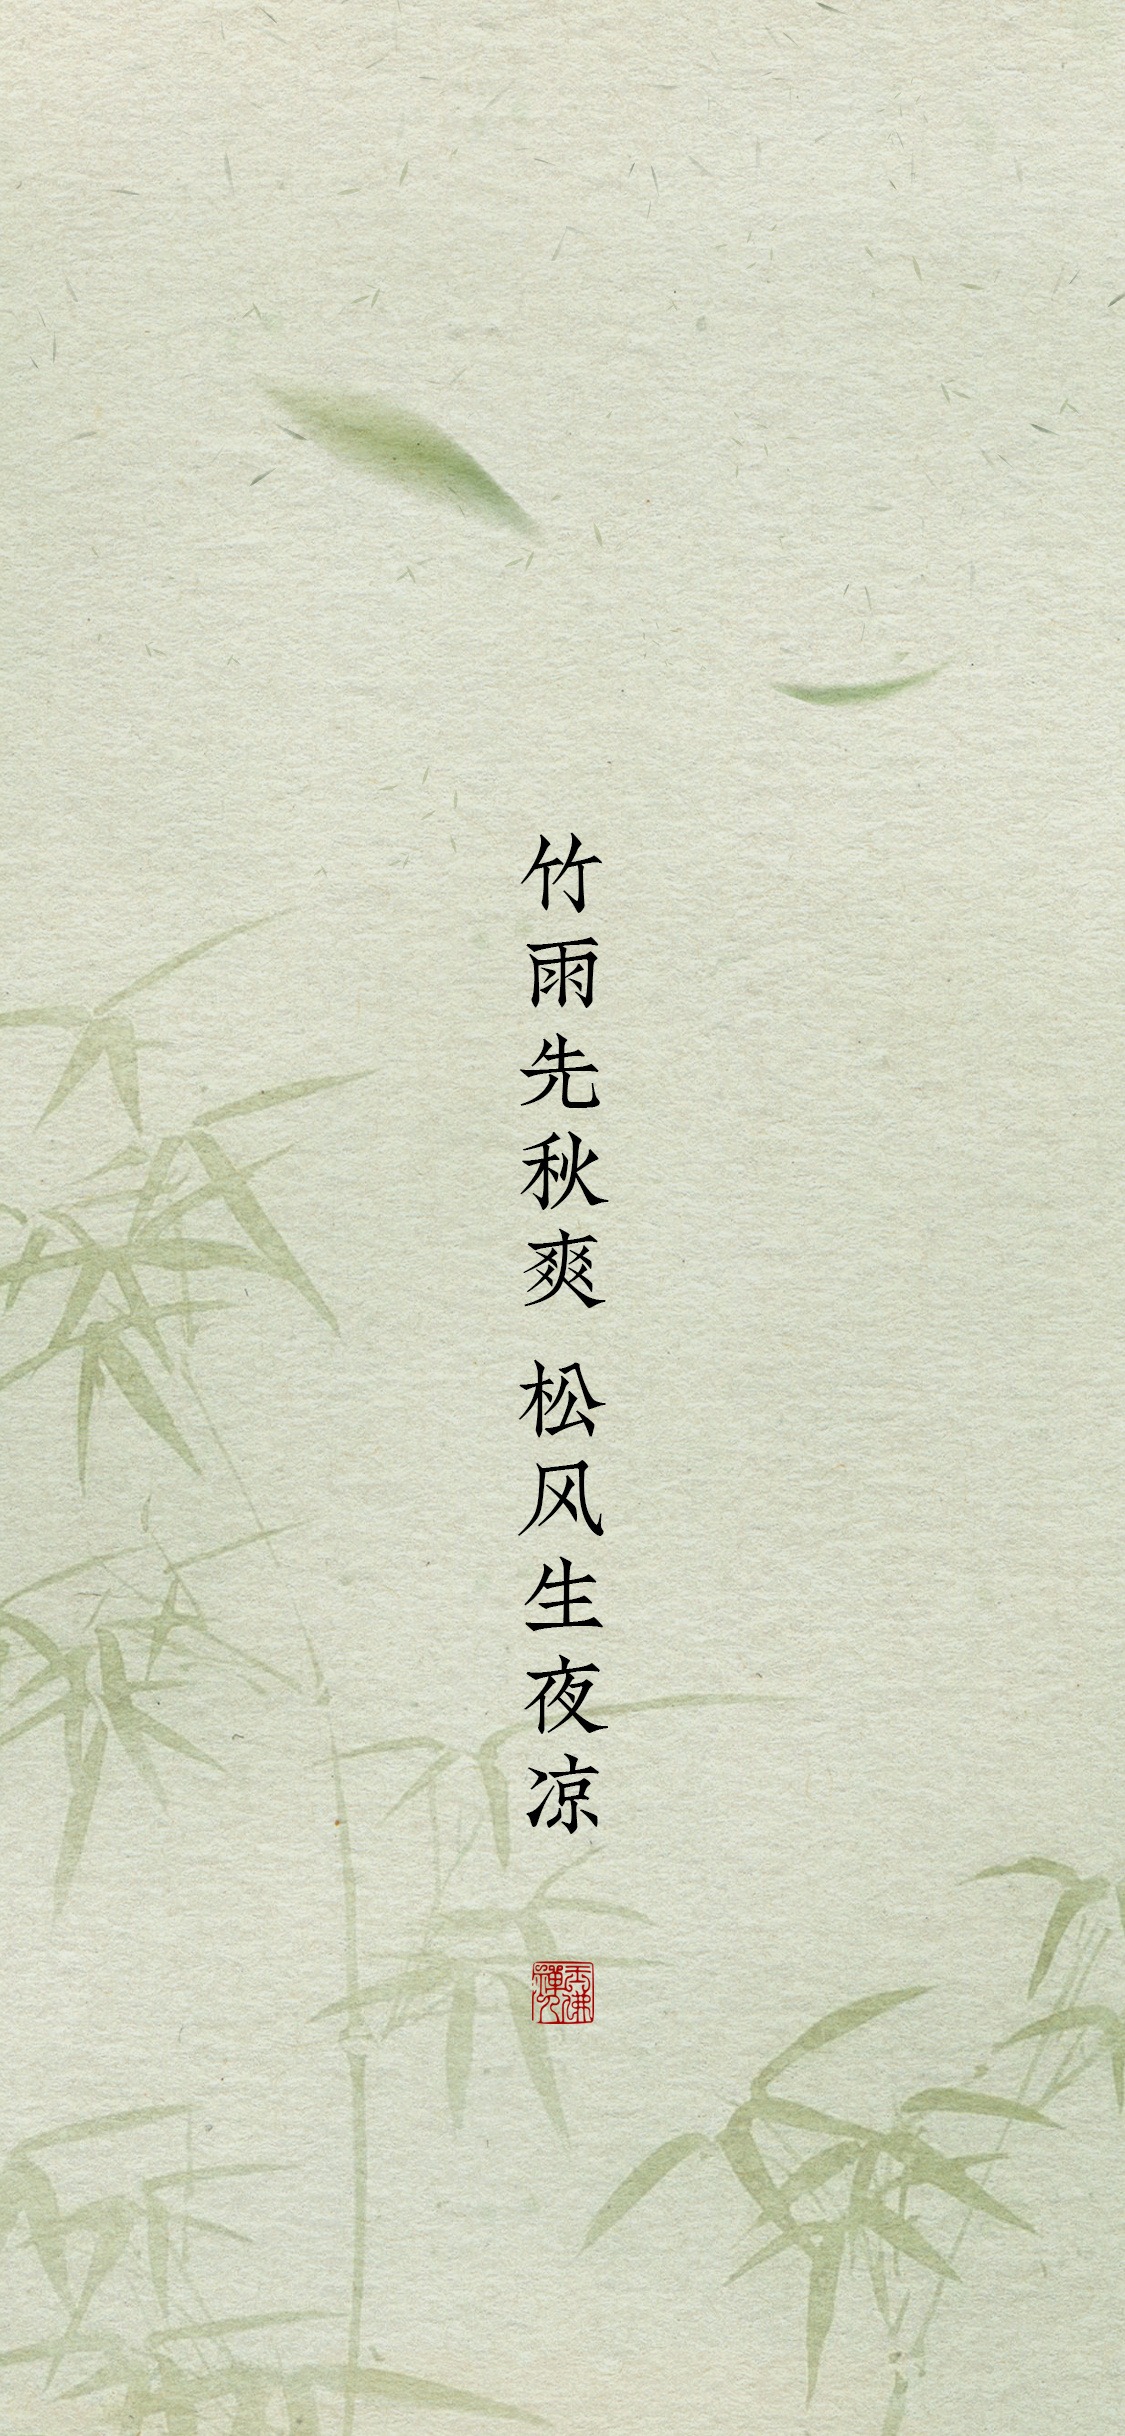 竹雨先秋爽 松风生夜凉